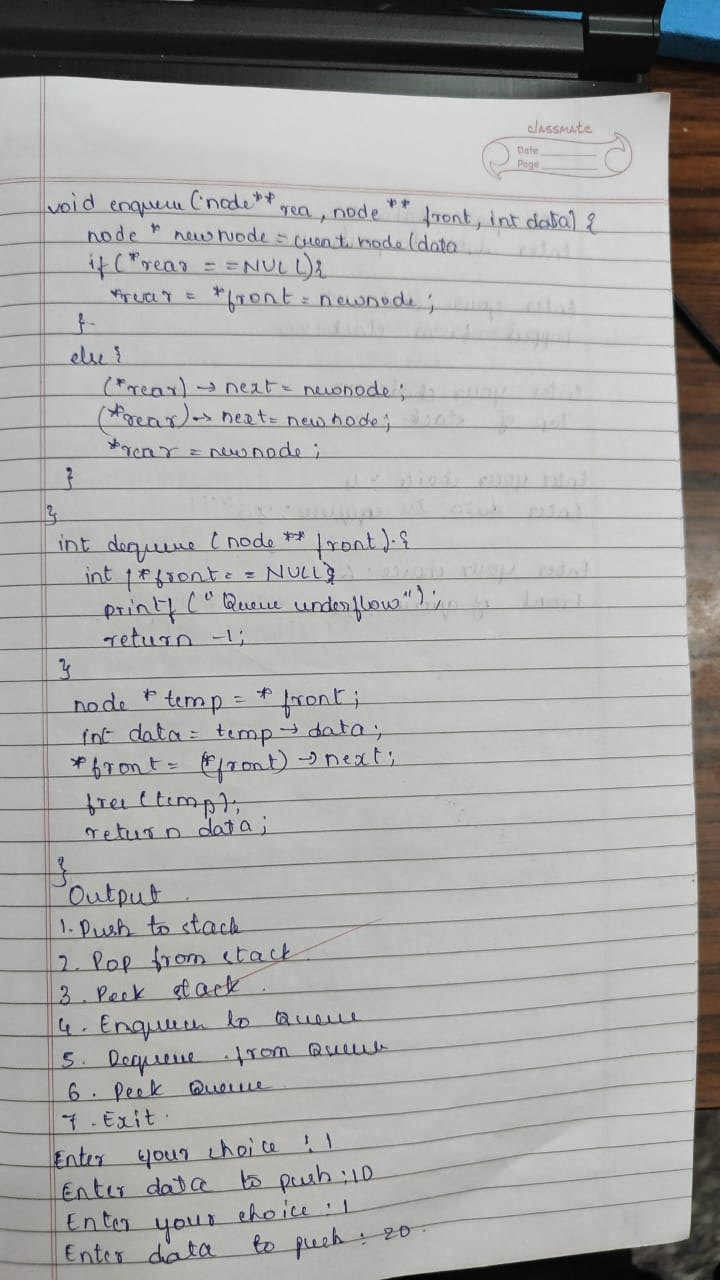 classmate
Date
Page
void enqueu (node** rea, node ** front, int data) {
node * newnode = creat node (data
if (*rear = = NULL){
*rear = *front = newnode;
}
else {
(*rear) → next = newnode;
(*rear) → next = newnode;
*rear = newnode;
}
}
int dequeue (node ** front). {
int (*front = = NULL){
printf ("Queue underflow");
return -1;
}
node * temp = * front;
int data = temp → data;
*front = (*front) → next;
free (temp);
return data;
}
Output
1. Push to stack
2. Pop from stack
3. Peek stack
4. Enqueu to Queue
5. Dequeue from Queue
6. Peek Queue
7. Exit.
Enter your choice : 1
Enter data to push : 10
Enter your choice : 1
Enter data to push : 20.